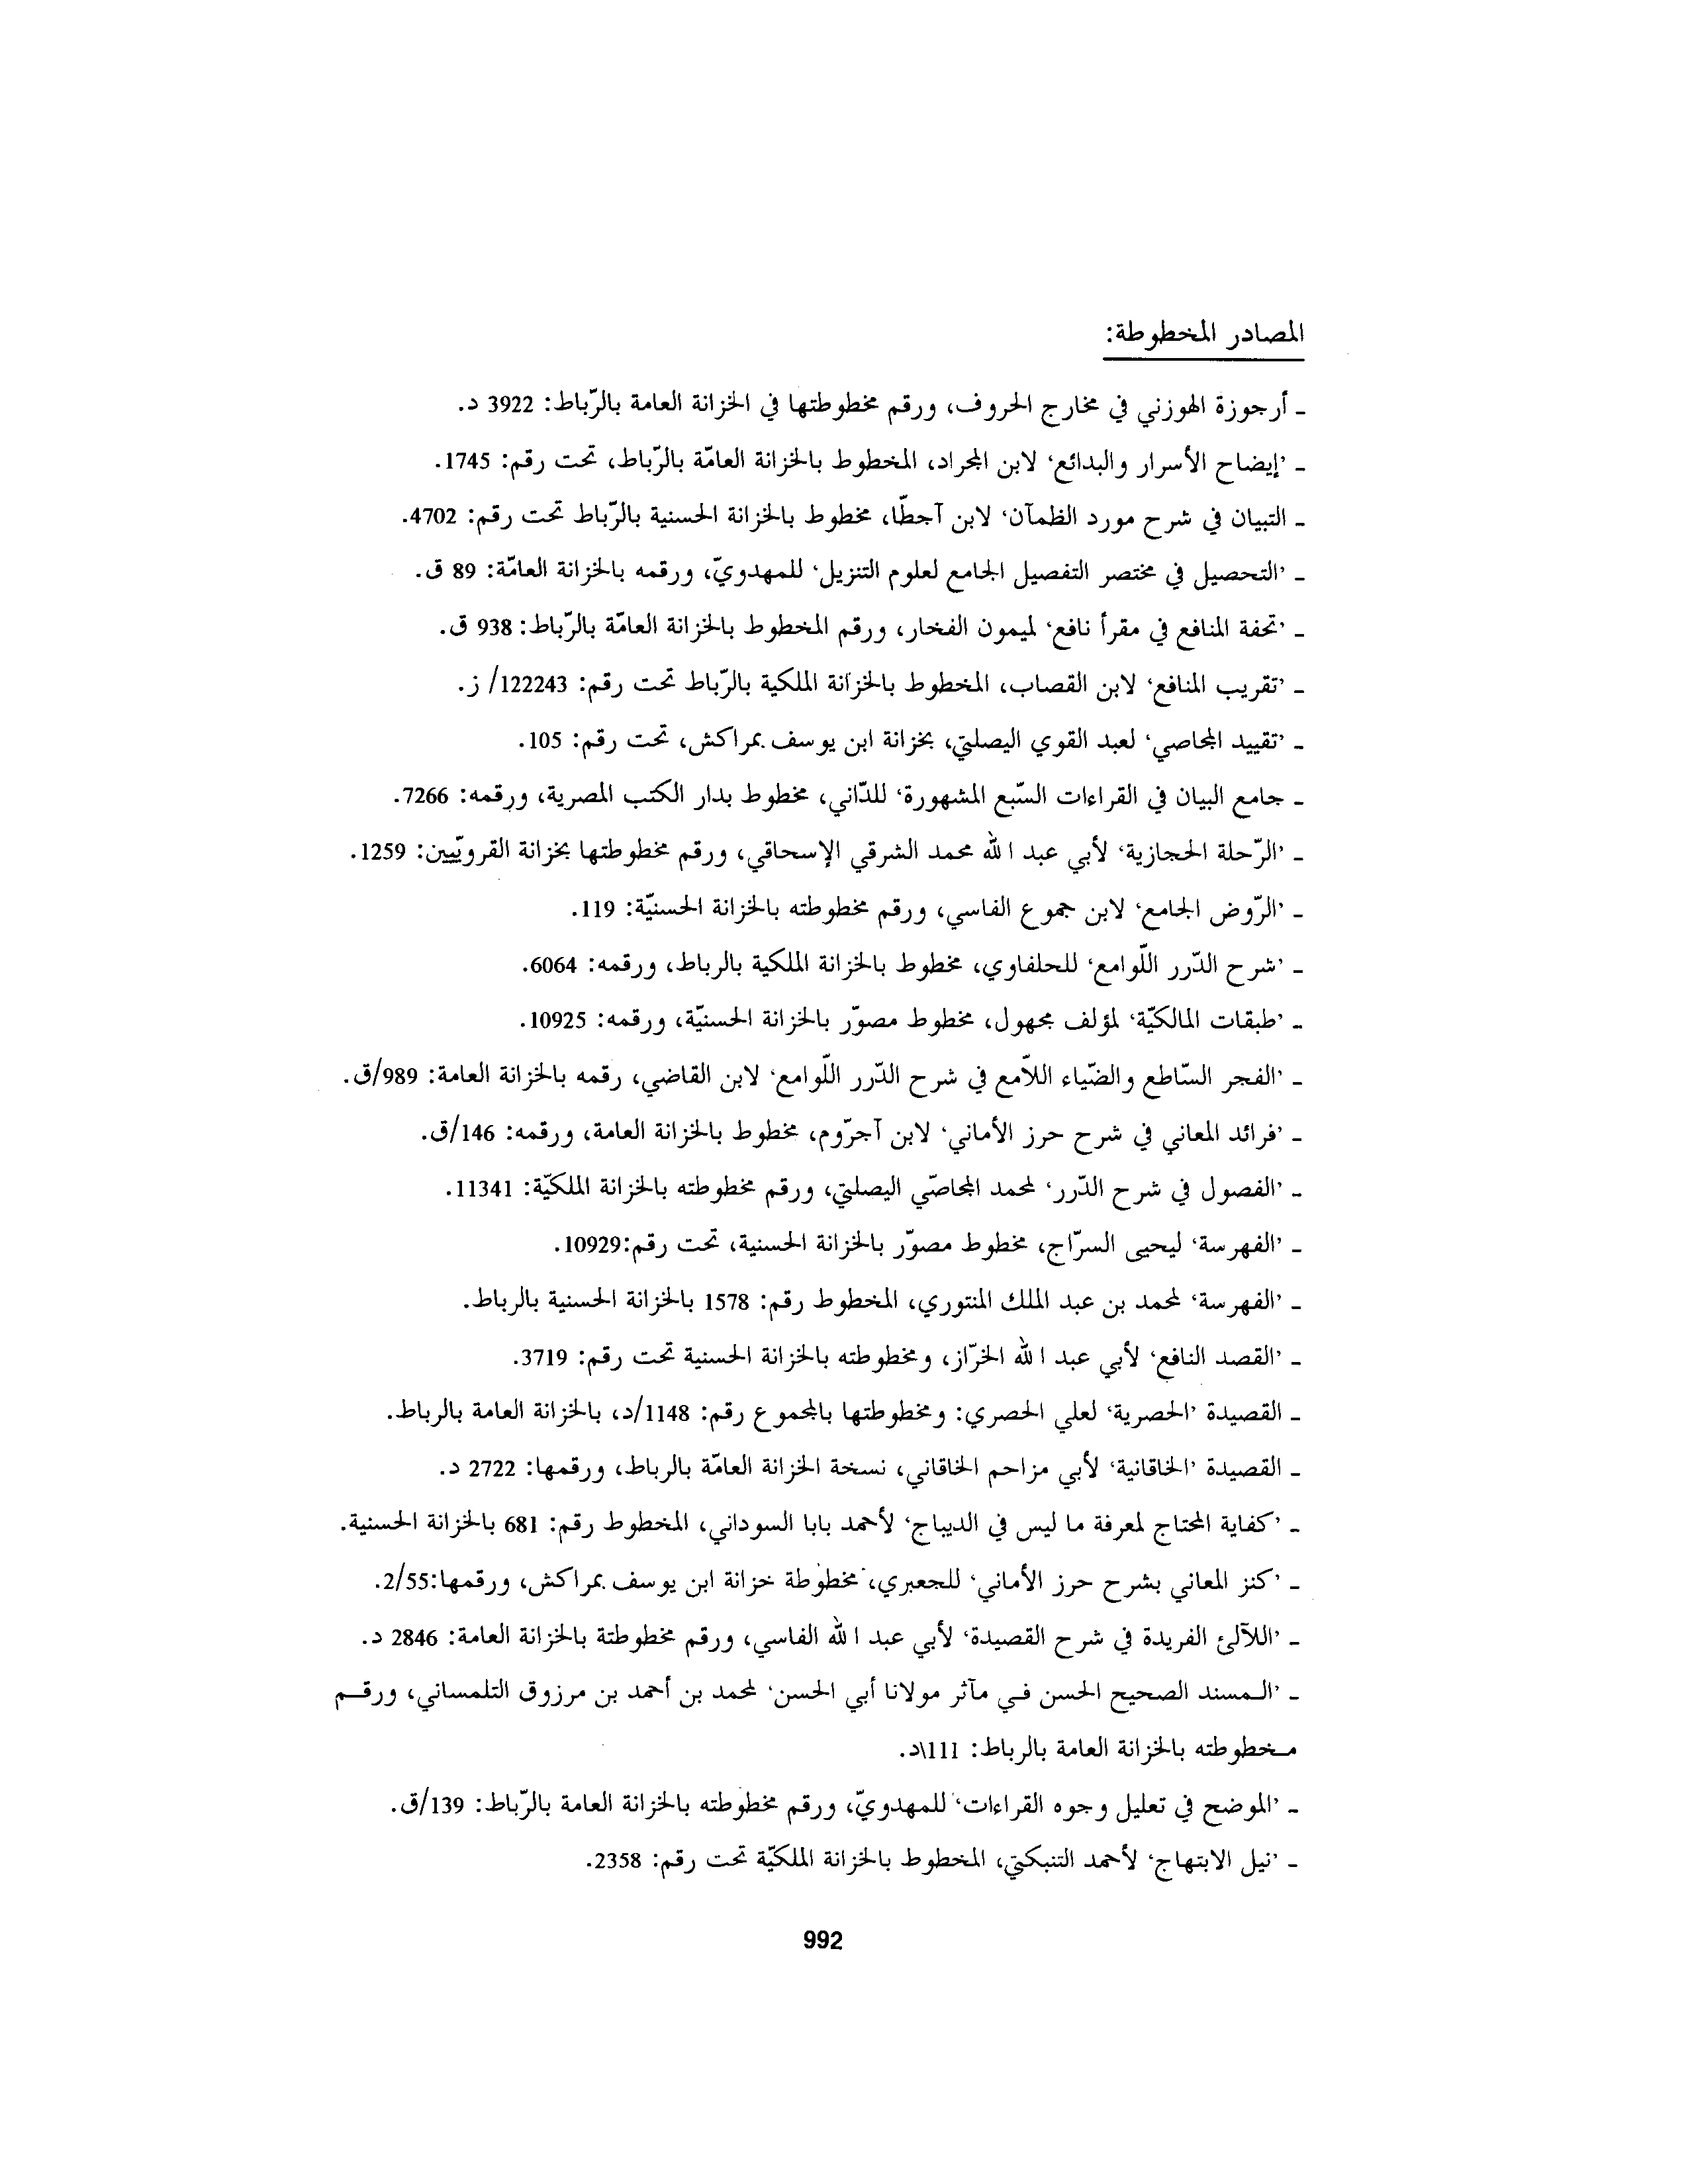 المصادر المخطوطة:
ـ أرجوزة الهوزني في مخارج الحروف، ورقم مخطوطتها في الخزانة العامة بالرّباط: 3922 د.
ـ ’إيضاح الأسرار والبدائع‘ لابن المجراد، المخطوط بالخزانة العامّة بالرّباط، تحت رقم: 1745.
ـ التبيان في شرح مورد الظمآن‘ لابن آجطّا، مخطوط بالخزانة الحسنية بالرّباط تحت رقم: 4702.
ـ ’التحصيل في مختصر التفصيل الجامع لعلوم التنزيل‘ للمهدويّ، ورقمه بالخزانة العامّة: 89 ق.
ـ ’تحفة المنافع في مقرأ نافع‘ لميمون الفخار، ورقم المخطوط بالخزانة العامّة بالرّباط: 938 ق.
ـ ’تقريب المنافع‘ لابن القصاب، المخطوط بالخزانة الملكية بالرّباط تحت رقم: 122243/ ز.
ـ ’تقييد المجاصي‘ لعبد القوي اليصلتي، بخزانة ابن يوسف بمراكش، تحت رقم: 105.
ـ جامع البيان في القراءات السّبع المشهورة‘ للدّاني، مخطوط بدار الكتب المصرية، ورقمه: 7266.
ـ ’الرّحلة الحجازية‘ لأبي عبد الله محمد الشرقي الإسحاقي، ورقم مخطوطتها بخزانة القرويّيين: 1259.
ـ ’الرّوض الجامع‘ لابن جموع الفاسي، ورقم مخطوطته بالخزانة الحسنيّة: 119.
ـ ’شرح الدّرر اللّوامع‘ للحلفاوي، مخطوط بالخزانة الملكية بالرباط، ورقمه: 6064.
ـ ’طبقات المالكيّة‘ لمؤلف مجهول، مخطوط مصوّر بالخزانة الحسنيّة، ورقمه: 10925.
ـ ’الفجر السّاطع والضّياء اللاّمع في شرح الدّرر اللّوامع‘ لابن القاضي، رقمه بالخزانة العامة: 989/ق.
ـ ’فرائد المعاني في شرح حرز الأماني‘ لابن آجرّوم، مخطوط بالخزانة العامة، ورقمه: 146/ق.
ـ ’الفصول في شرح الدّرر‘ لمحمد المجاصّي اليصلتي، ورقم مخطوطته بالخزانة الملكيّة: 11341.
ـ ’الفهرسة‘ ليحيى السرّاج، مخطوط مصوّر بالخزانة الحسنية، تحت رقم:10929.
ـ ’الفهرسة‘ لمحمد بن عبد الملك المنتوري، المخطوط رقم: 1578 بالخزانة الحسنية بالرباط.
ـ ’القصد النافع‘ لأبي عبد الله الخرّاز، ومخطوطته بالخزانة الحسنية تحت رقم: 3719.
ـ القصيدة ’الحصرية‘ لعلي الحصري: ومخطوطتها بالمجموع رقم: 1148/د، بالخزانة العامة بالرباط.
ـ القصيدة ’الخاقانية‘ لأبي مزاحم الخاقاني، نسخة الخزانة العامّة بالرباط، ورقمها: 2722 د.
ـ ’كفاية المحتاج لمعرفة ما ليس في الديباج‘ لأحمد بابا السوداني، المخطوط رقم: 681 بالخزانة الحسنية.
ـ ’كنز المعاني بشرح حرز الأماني‘ للجعبري، مخطوطة خزانة ابن يوسف بمراكش، ورقمها:2/55.
ـ ’اللآلئ الفريدة في شرح القصيدة‘ لأبي عبد الله الفاسي، ورقم مخطوطتة بالخزانة العامة: 2846 د.
ـ ’الـمسند الصحيح الحسن فـي مآثر مولانا أبي الحسن‘ لمحمد بن أحمد بن مرزوق التلمساني، ورقـم
مـخطوطته بالخزانة العامة بالرباط: 111\د.
ـ ’الموضح في تعليل وجوه القراءات‘ للمهدويّ، ورقم مخطوطته بالخزانة العامة بالرّباط: 139/ق.
ـ ’نيل الابتهاج‘ لأحمد التنبكتي، المخطوط بالخزانة الملكيّة تحت رقم: 2358.
992